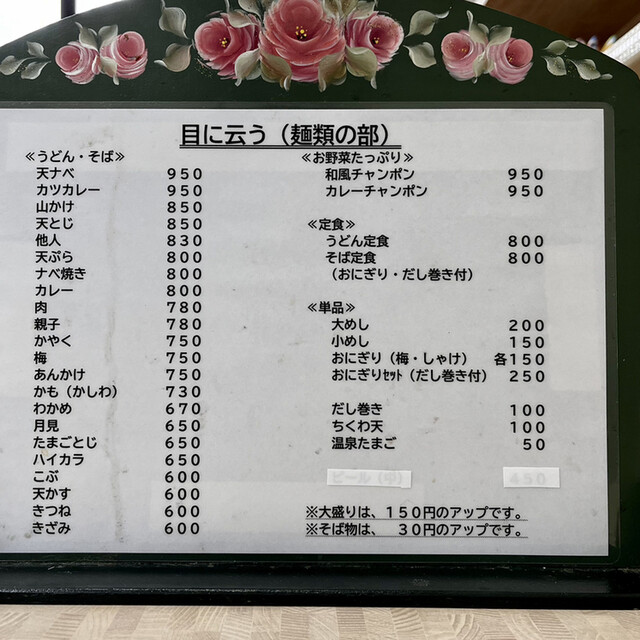 目に云う（麺類の部）
≪うどん・そば≫
天ナベ 950
カツカレー 950
山かけ 850
天とじ 850
他人 830
天ぷら 800
ナベ焼き 800
カレー 800
肉 780
親子 780
かやく 750
梅 750
あんかけ 750
かも（かしわ） 730
わかめ 670
月見 650
たまごとじ 650
ハイカラ 650
こぶ 600
天かす 600
きつね 600
きざみ 600
≪お野菜たっぷり≫
和風チャンポン 950
カレーチャンポン 950
≪定食≫
うどん定食 800
そば定食 800
（おにぎり・だし巻き付）
≪単品≫
大めし 200
小めし 150
おにぎり（梅・しゃけ） 各150
おにぎりｾｯﾄ（だし巻き付） 250
だし巻き 100
ちくわ天 100
温泉たまご 50
ビール（中） 450
※大盛りは、150円のアップです。
※そば物は、 30円のアップです。